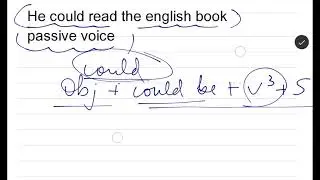 He could read the english book
passive voice
could
Obj + could be + v³ + S